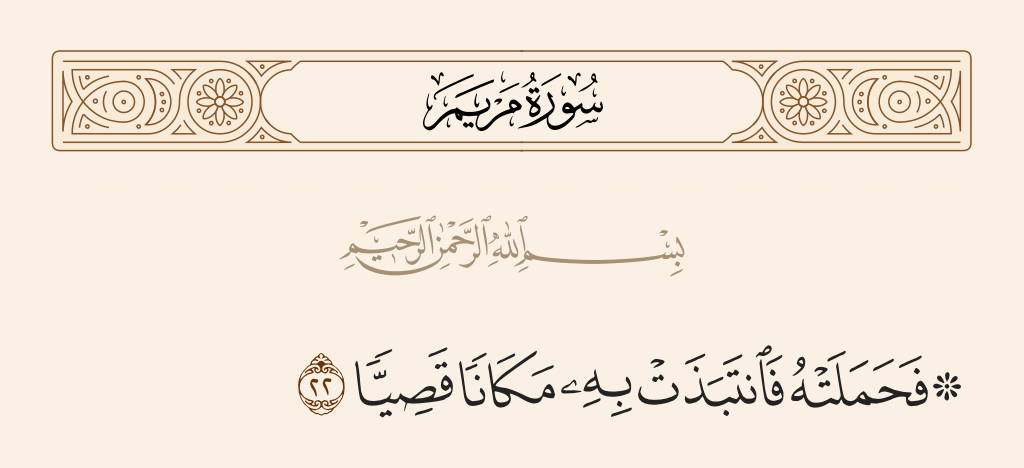 سُورَةُ مَرْيَمَ
بِسْمِ ٱللَّهِ ٱلرَّحْمَٰنِ ٱلرَّحِيمِ
۞ فَحَمَلَتْهُ فَٱنتَبَذَتْ بِهِۦ مَكَانًا قَصِيًّا ٢٢